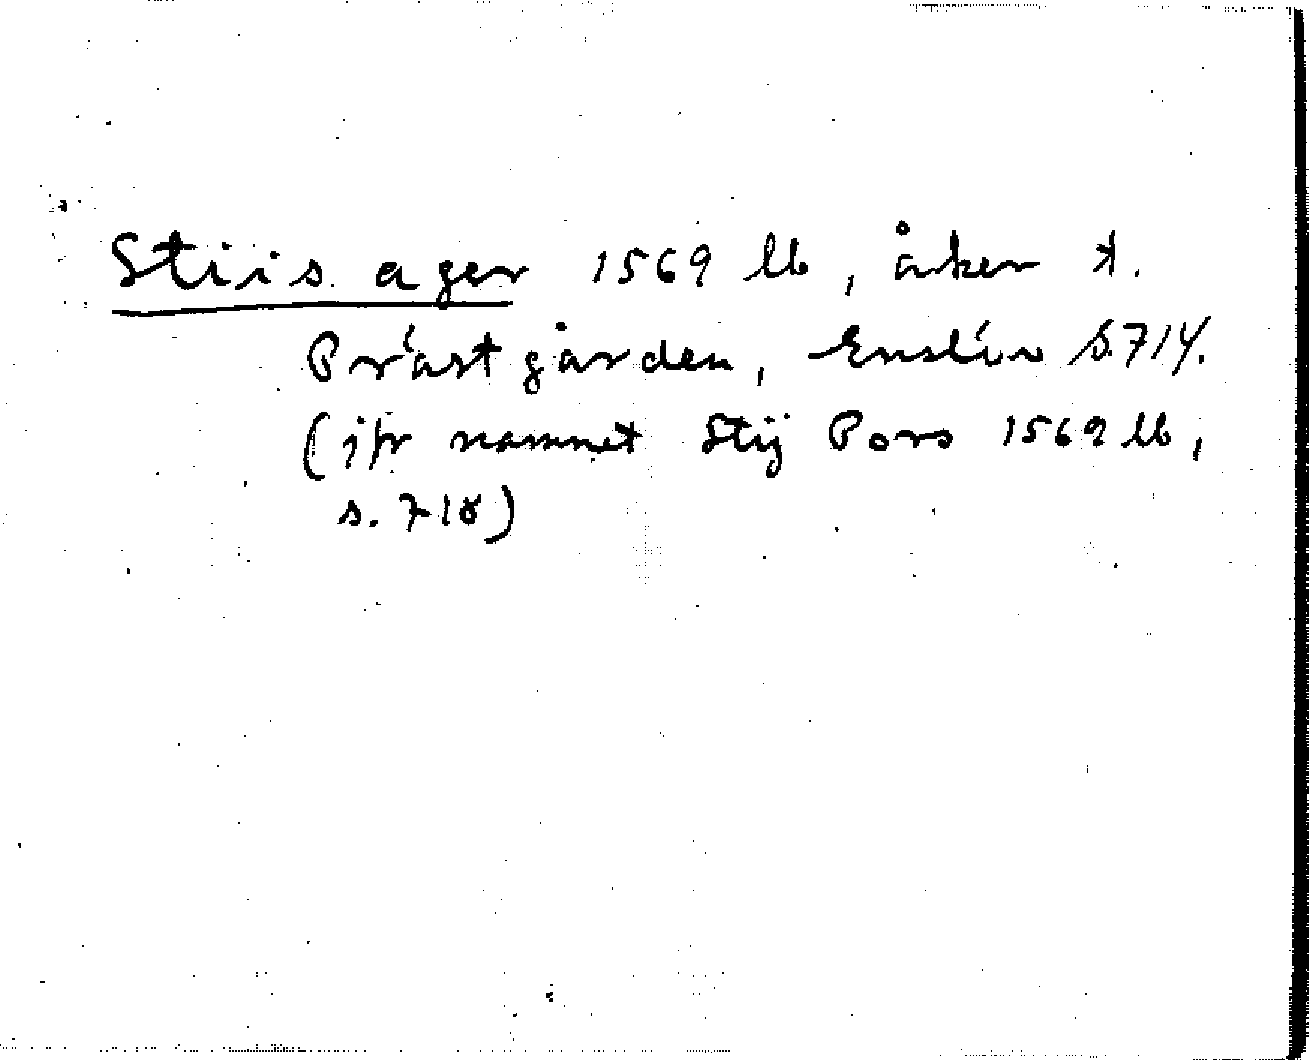 Stiis ager 1569 lb, åker t.
Prästgården, Enslöv S.714.
(jfr namnet Stij Pors 1569 lb,
s. 718)